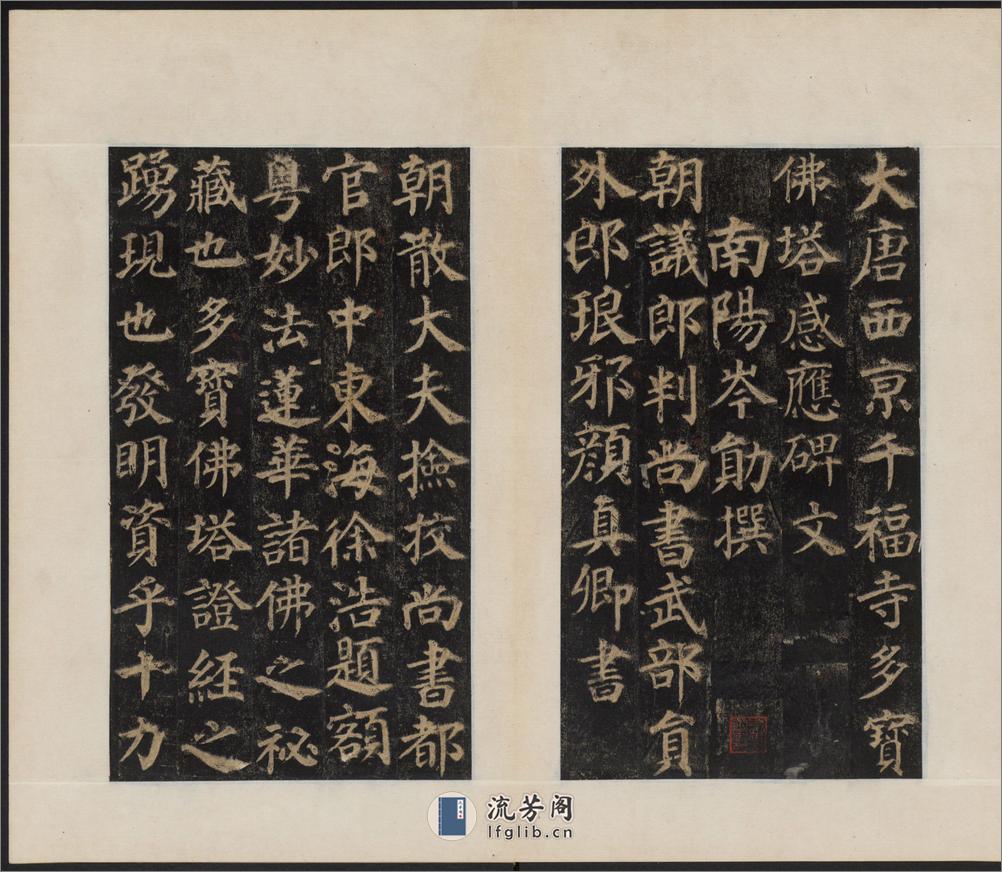 大唐西京千福寺多寶
佛塔感應碑文
南陽岑勛撰
朝議郎判尚書武部員
外郎琅邪顏真卿書
朝散大夫撿挍尚書都
官郎中東海徐浩題額
粵妙法蓮華諸佛之祕
藏也多寶佛塔證經之
踴現也發明資乎十力
流芳阁
lfglib.cn